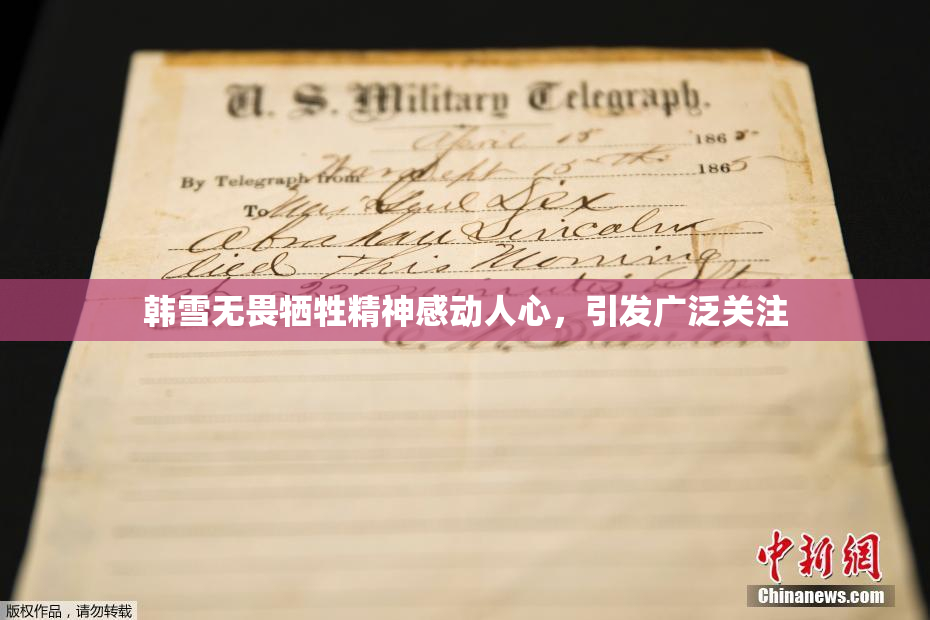 U. S. Military Telegraph.
April 15 1865
By Telegraph from War Dept 15th 1865
To Maj Genl Dix
Abraham Lincoln
died This Morning
at 22 minutes after
韩雪无畏牺牲精神感动人心，引发广泛关注
E. M. Stanton
中新网
Chinanews.com
版权作品，请勿转载